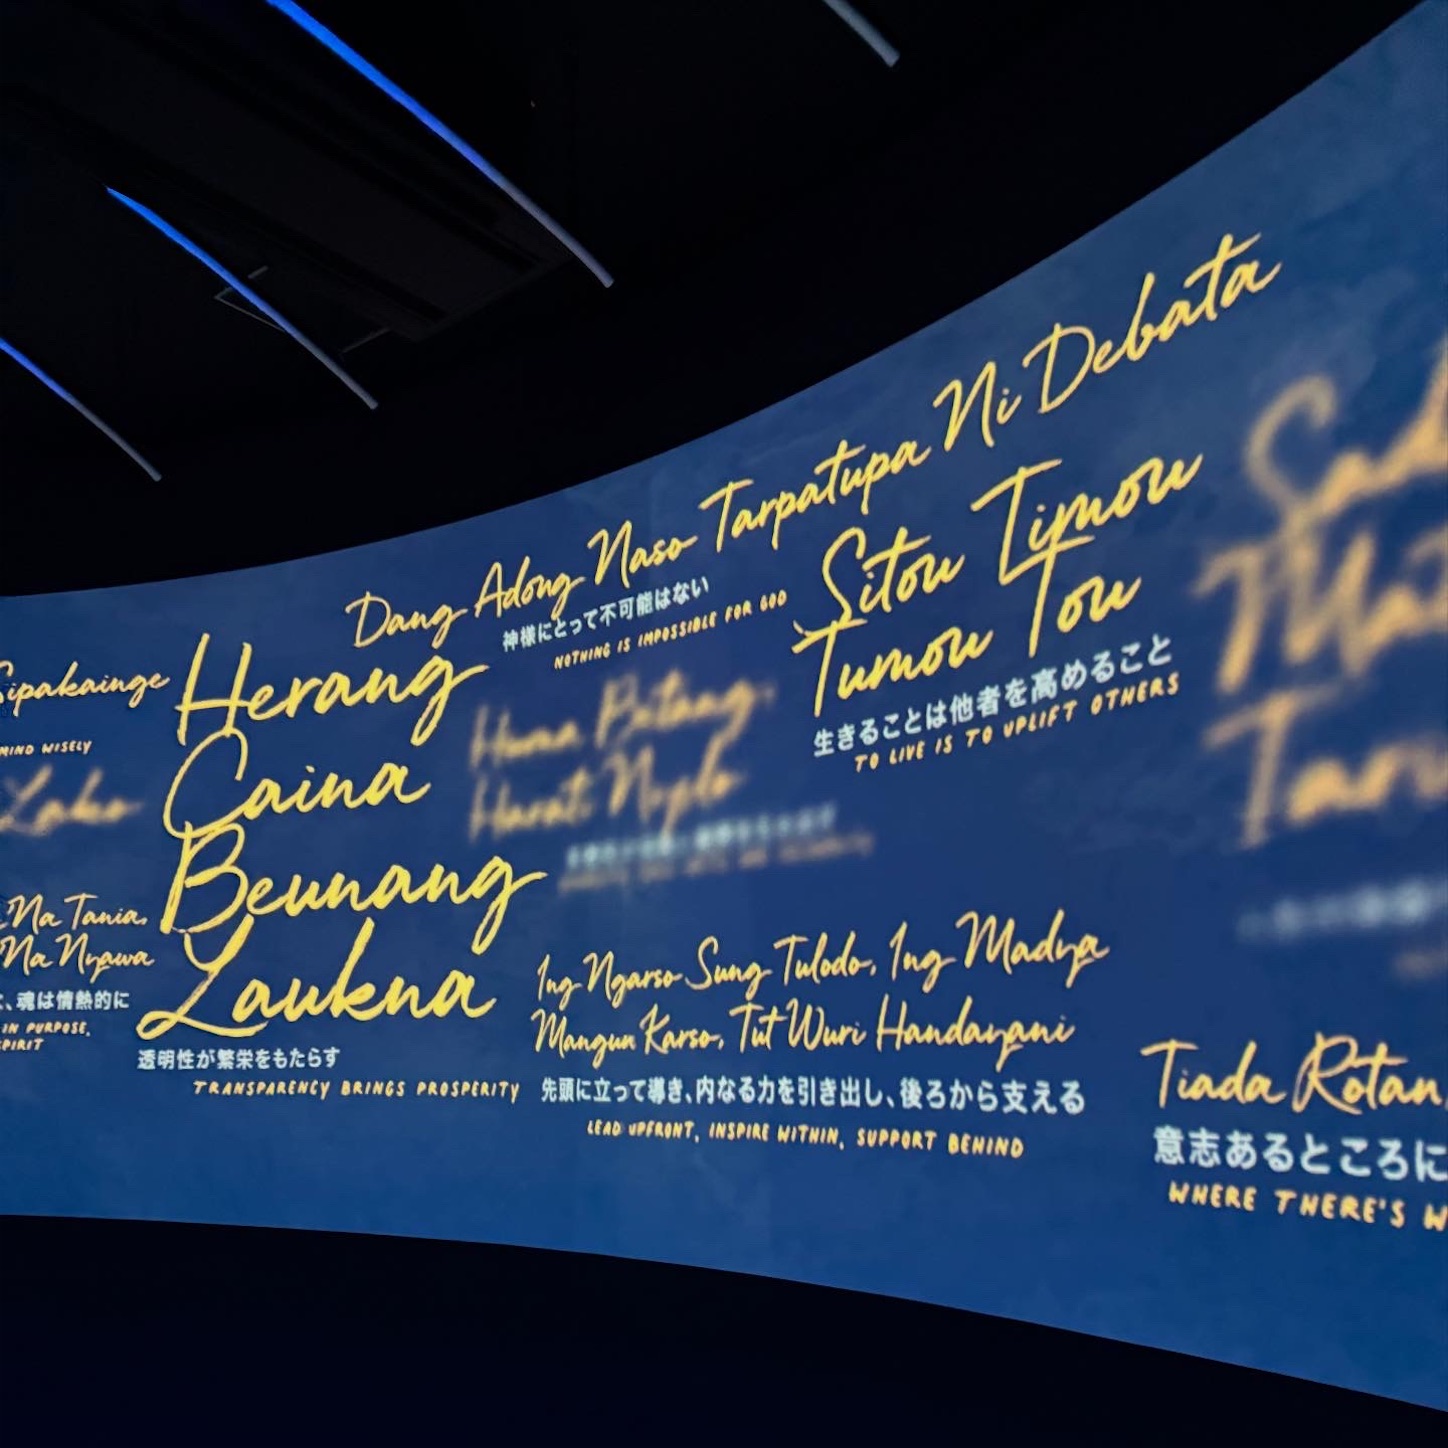 Dang Adong Naso Tarpatupa Ni Debata
神様にとって不可能はない
NOTHING IS IMPOSSIBLE FOR GOD
Sipakainge
MIND WISELY
Na Tania,
Na Nyawa
魂は情熱的に
IN PURPOSE,
SPIRIT
Herang
Caina
Beunang
Laukna
透明性が繁栄をもたらす
TRANSPARENCY BRINGS PROSPERITY
Sitou Timou
Tumou Tou
生きることは他者を高めること
TO LIVE IS TO UPLIFT OTHERS
Ing Ngarso Sung Tulodo, Ing Madya
Mangun Karso, Tut Wuri Handayani
先頭に立って導き、内なる力を引き出し、後ろから支える
LEAD UPFRONT, INSPIRE WITHIN, SUPPORT BEHIND
Tiada Rotan,
意志あるところに
WHERE THERE'S W